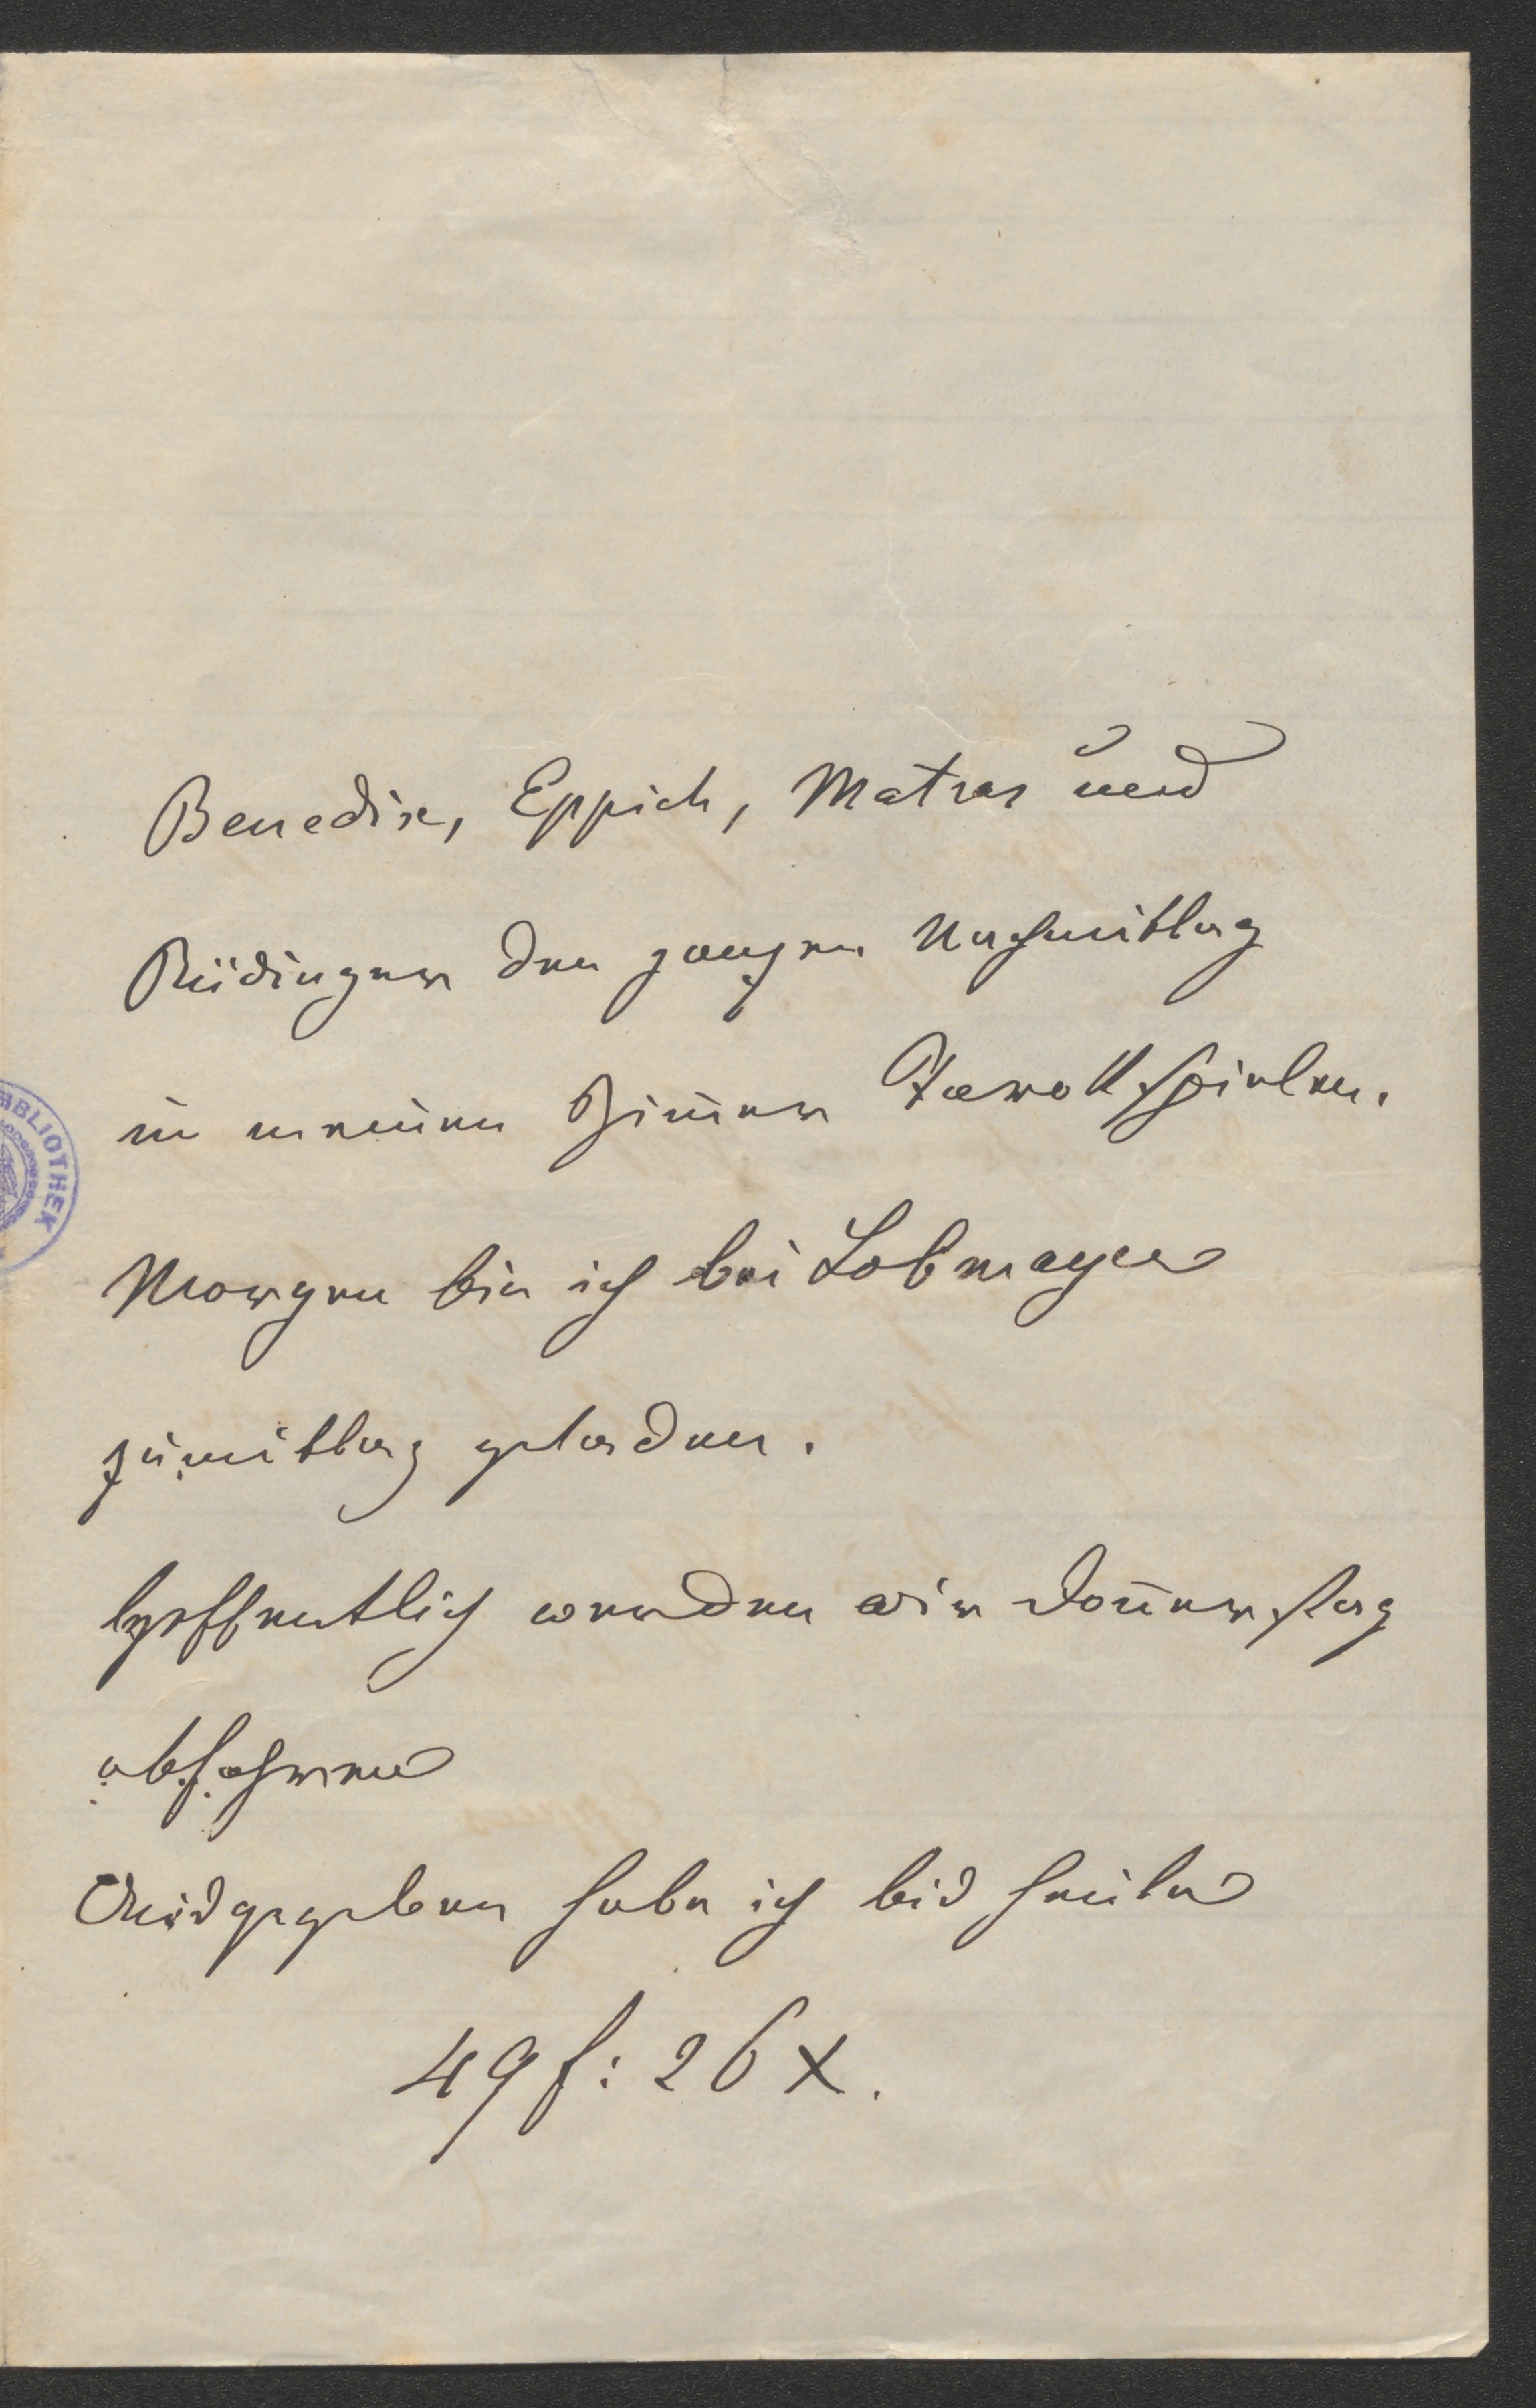 Benedix, Eppich, Matras und
Rüdinger den ganzen Nachmittag
in meinem Zimmer Tarokk spielen.
Morgen bin ich bei Lobmayer
zumittag geladen.
hoffentlich werden wir Don̄erstag
abfahren
Ausgegeben habe ich bis heute
49 f: 26 x.
BIBLIOTHEK